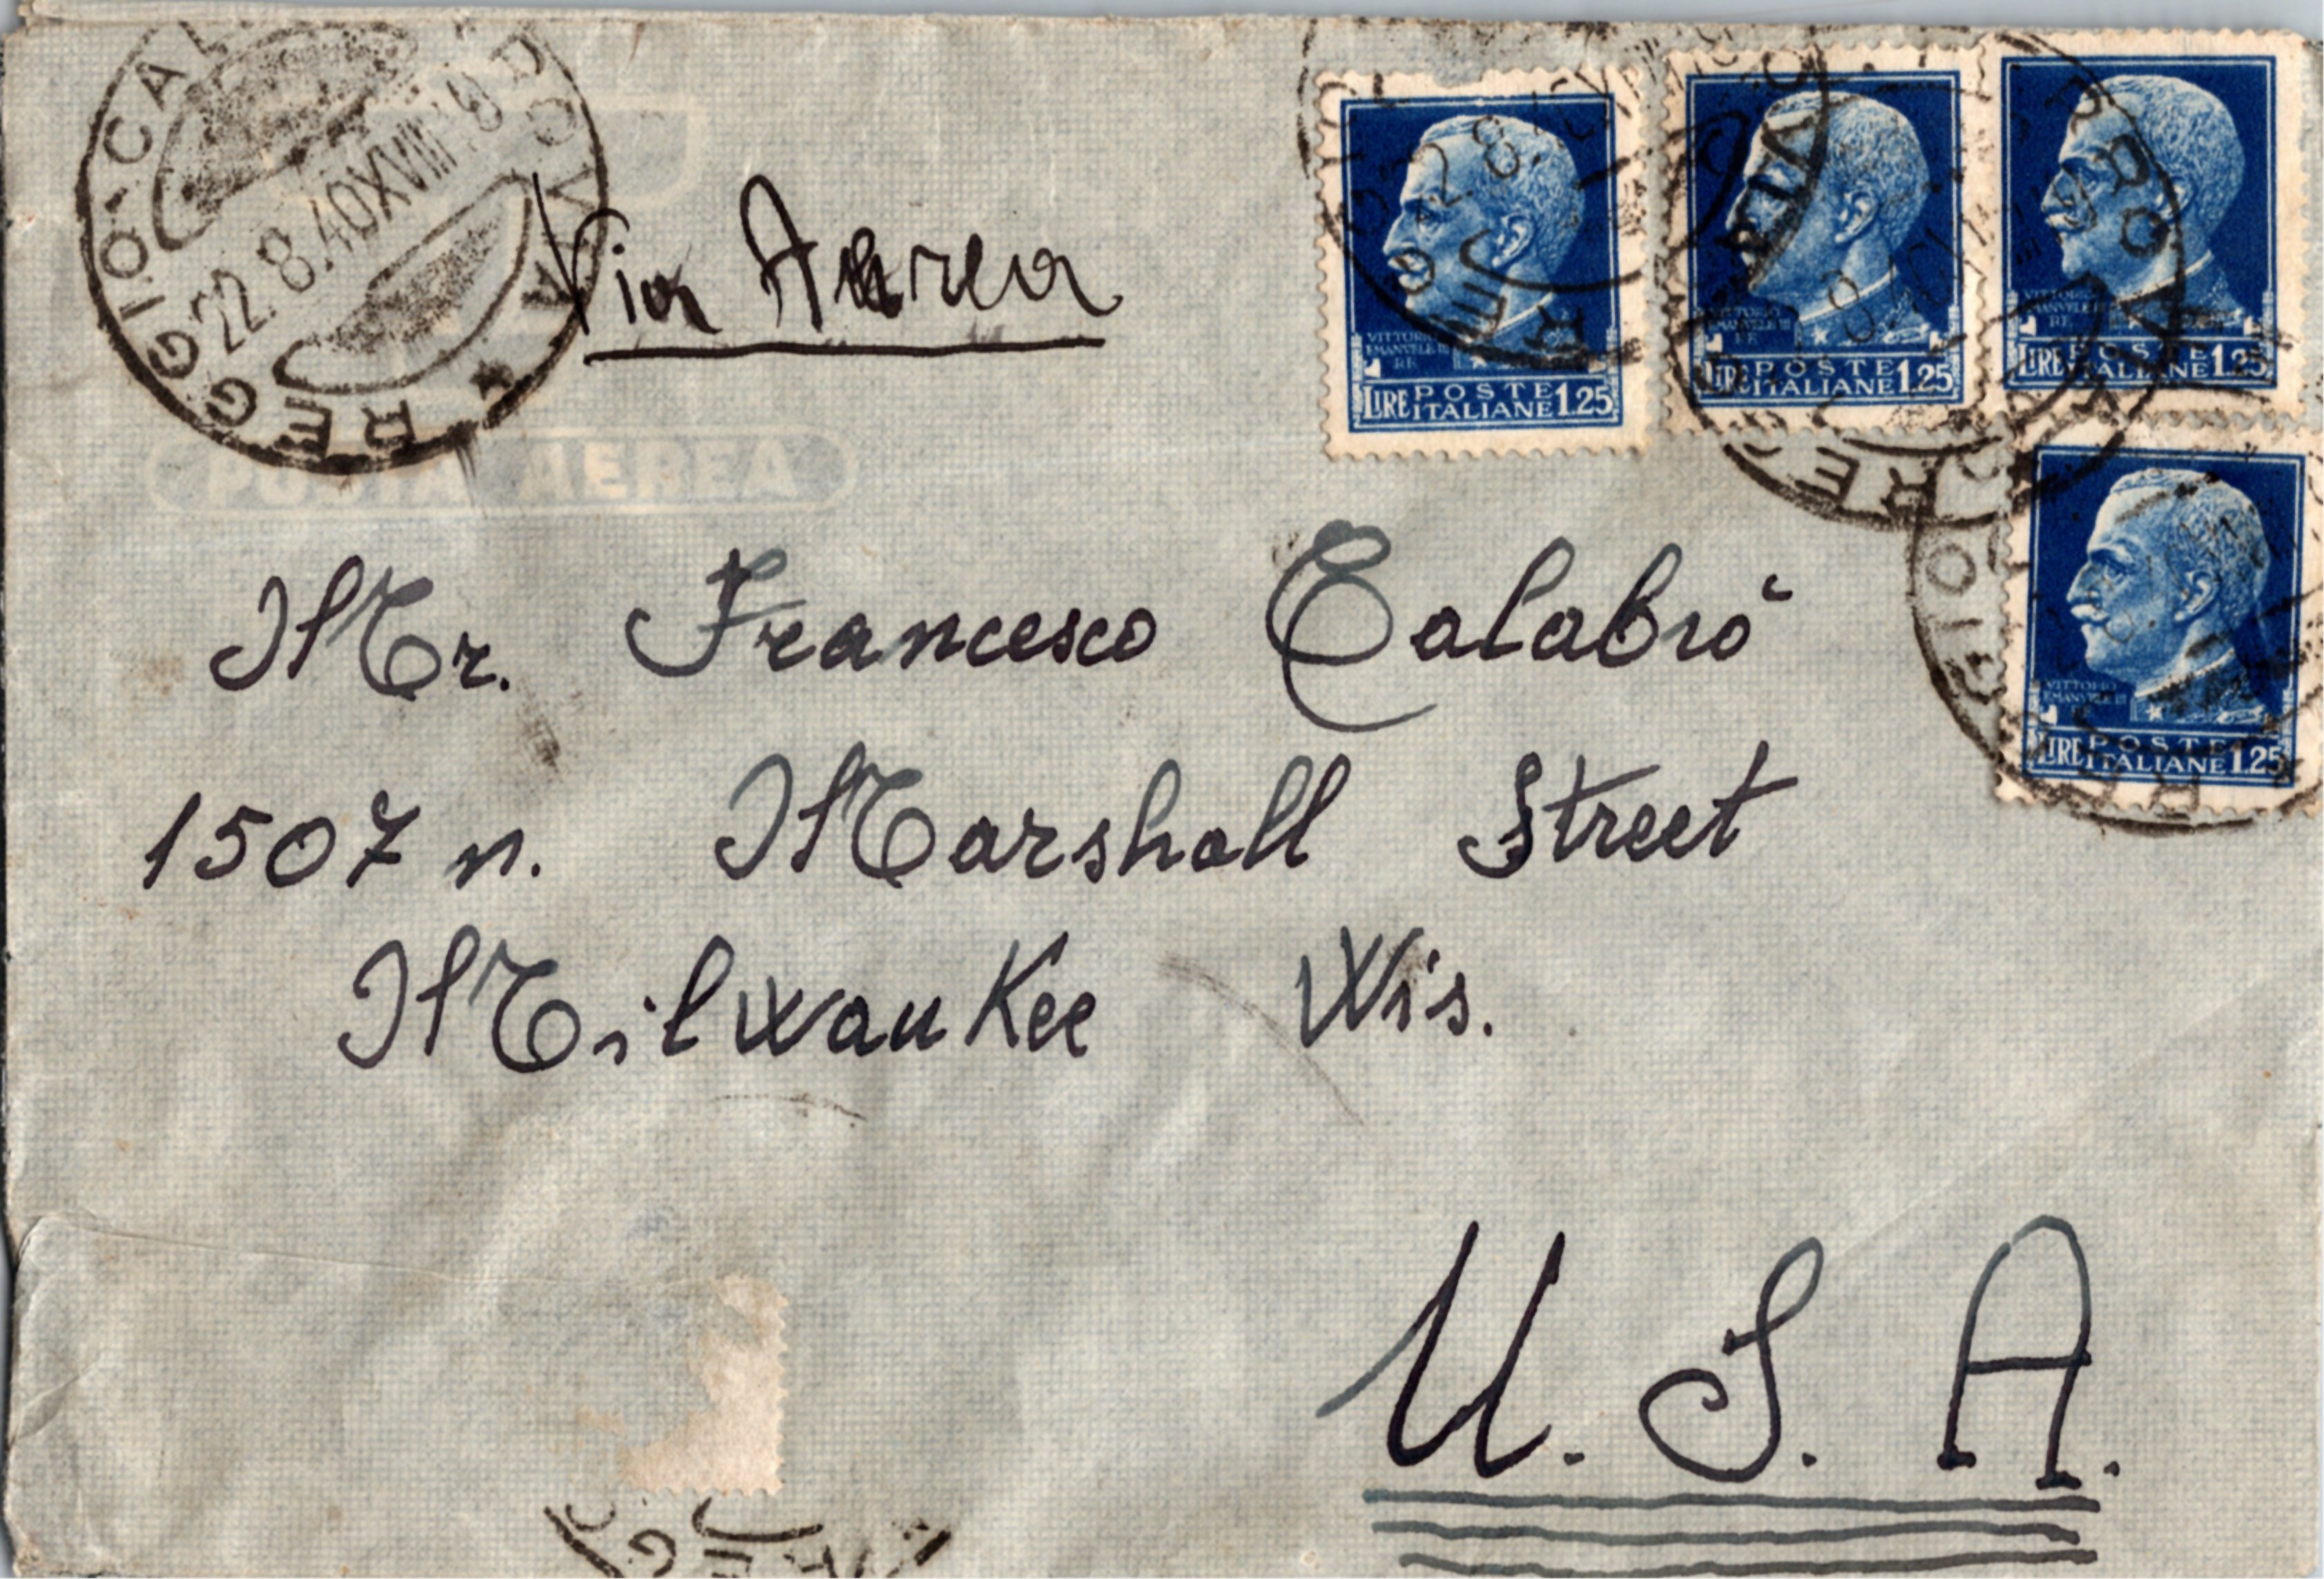 REGGIO-CAL
22.8.40XVIII
REGG
Via Aerea
POSTA AEREA
VITTORIO
EMANVELE III
RE
LIRE POSTE ITALIANE 1.25
VITTORIO
EMANVELE III
RE
LIRE POSTE ITALIANE 1.25
VITTORIO
EMANVELE III
RE
LIRE POSTE ITALIANE 1.25
VITTORIO
EMANVELE III
RE
LIRE POSTE ITALIANE 1.25
Mr. Francesco Calabrò
1507 n. Marshall Street
Milwaukee Wis.
U. S. A.